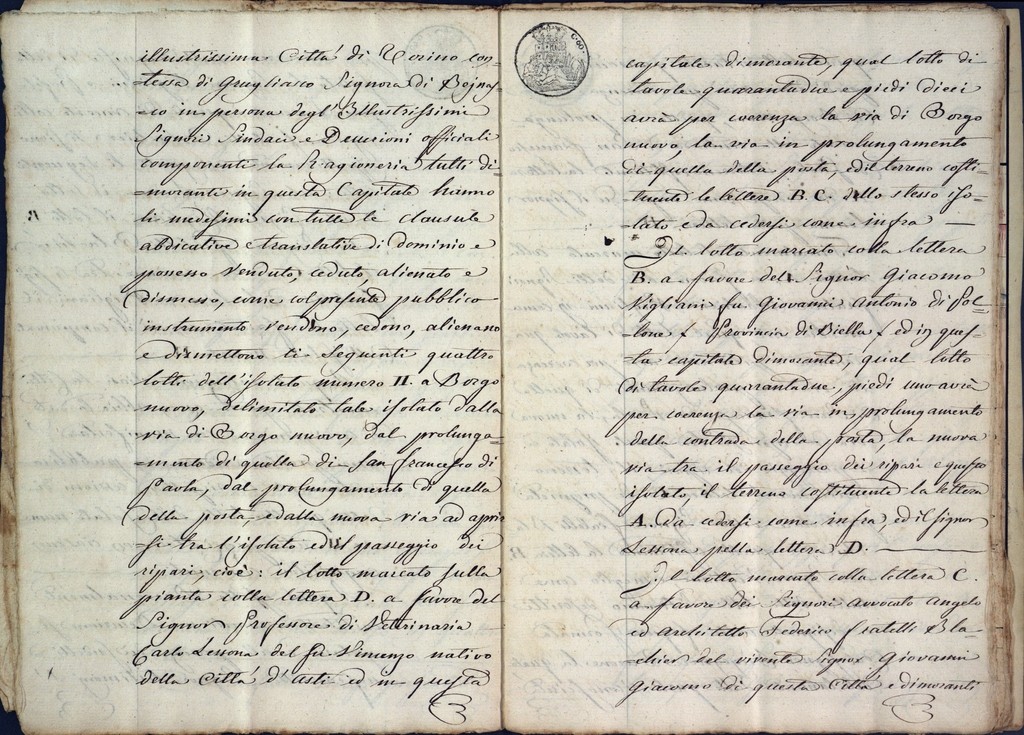 illustrissima Città di Torino con=
=tessa di Grugliasco Signora di Bejnas=
=co in persona degl'Illustrissimi
Signori Sindaci e Decurioni officiali
componenti la Ragioneria tutti di=
=moranti in questa Capitale hanno
li medesimi con tutte le clausule
abdicative e translative di dominio e
possesso venduto, ceduto, alienato e
dismesso, come col presente pubblico
instrumento vendono, cedono, alienano
e dismettono li seguenti quattro
lotti dell'isolato numero II. a Borgo
nuovo, delimitato tale isolato dalla
via di Borgo nuovo, dal prolunga=
=mento di quella di San Francesco di
Paola, dal prolungamento di quella
della posta, e dalla nuova via ad aprir=
=si tra l'isolato ed il passeggio dei
ripari, cioè: il lotto marcato sulla
pianta colla lettera D. a favore del
Signor Professore di Vetrinaria
Carlo Lessona del fu Vincenzo nativo
della Città d'Asti ed in questa
C. 60.
capitale dimorante, qual lotto di
tavole quarantadue e piedi dieci
avrà per coerenza la via di Borgo
nuovo, la via in prolungamento
di quella della posta, ed il terreno costi=
=tuente le lettere B. C. dello stesso iso=
=lato e da cedersi come infra —
Il lotto marcato colla lettera
B. a favore del Signor Giacomo
Vigliani fu Giovanni Antonio di Pol=
=lone ( Provincia di Biella ) ed in ques=
=ta capitale dimorante, qual lotto
di tavole quarantadue, piedi uno avrà
per coerenza la via in prolungamento
della contrada della posta, la nuova
via tra il passeggio dei ripari e questo
isolato il terreno costituente la lettera
A. da cedersi come infra ed il signor
Lessona pella lettera D. —
Il lotto marcato colla lettera C.
a favore dei Signori avvocato Angelo
ed architetto Federico fratelli Bla=
=chier del vivente Signor Giovanni
Giacomo di questa Città e dimoranti